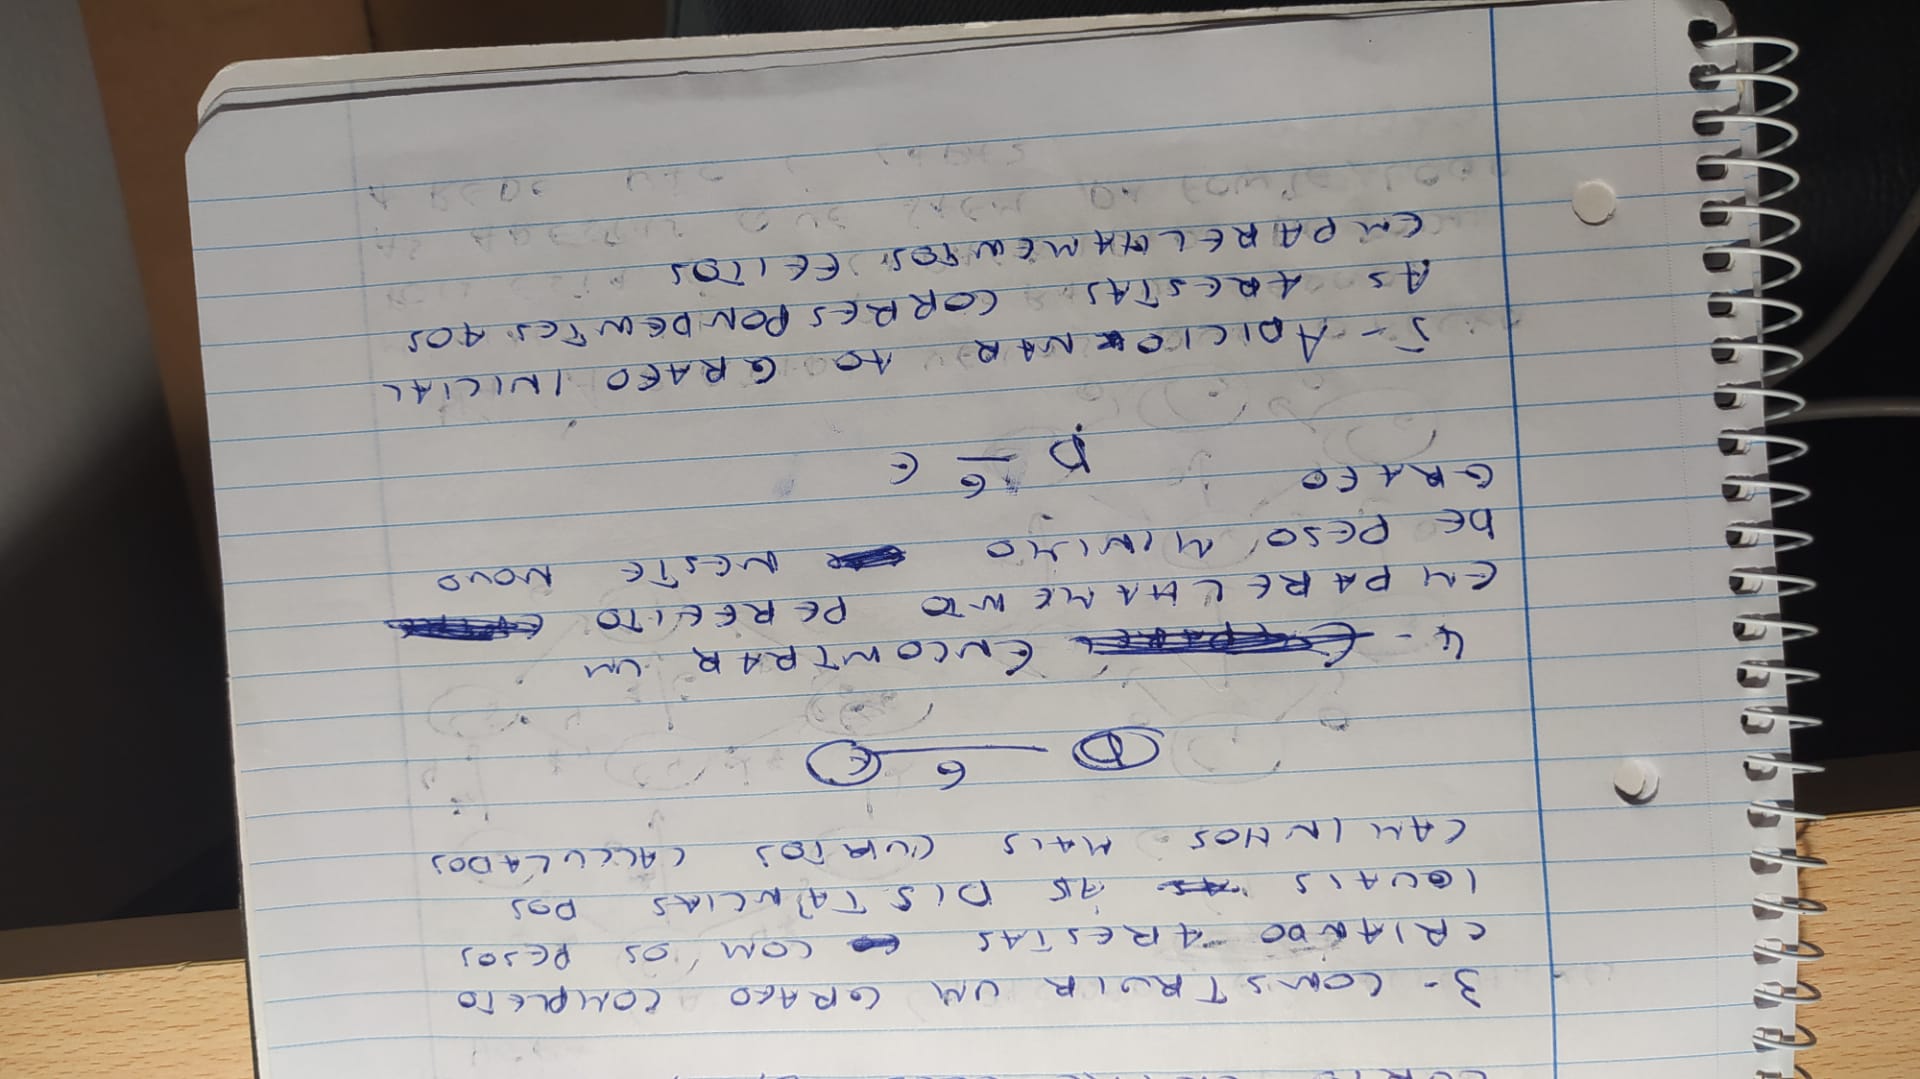 3- CONSTRUIR UM GRAFO COMPLETO
CRIANDO ARESTAS COM OS PESOS
IGUAIS AS DISTÂNCIAS DOS
CAMINHOS MAIS CURTOS CALCULADOS
D 6 E
4- ENCONTRAR UM
EMPARELHAMENTO PERFEITO
DE PESO MINIMO NESTE NOVO
GRAFO
D 6 E
5- ADICIONAR AO GRAFO INICIAL
AS ARESTAS CORRESPONDENTES AOS
EMPARELHAMENTOS FEITOS